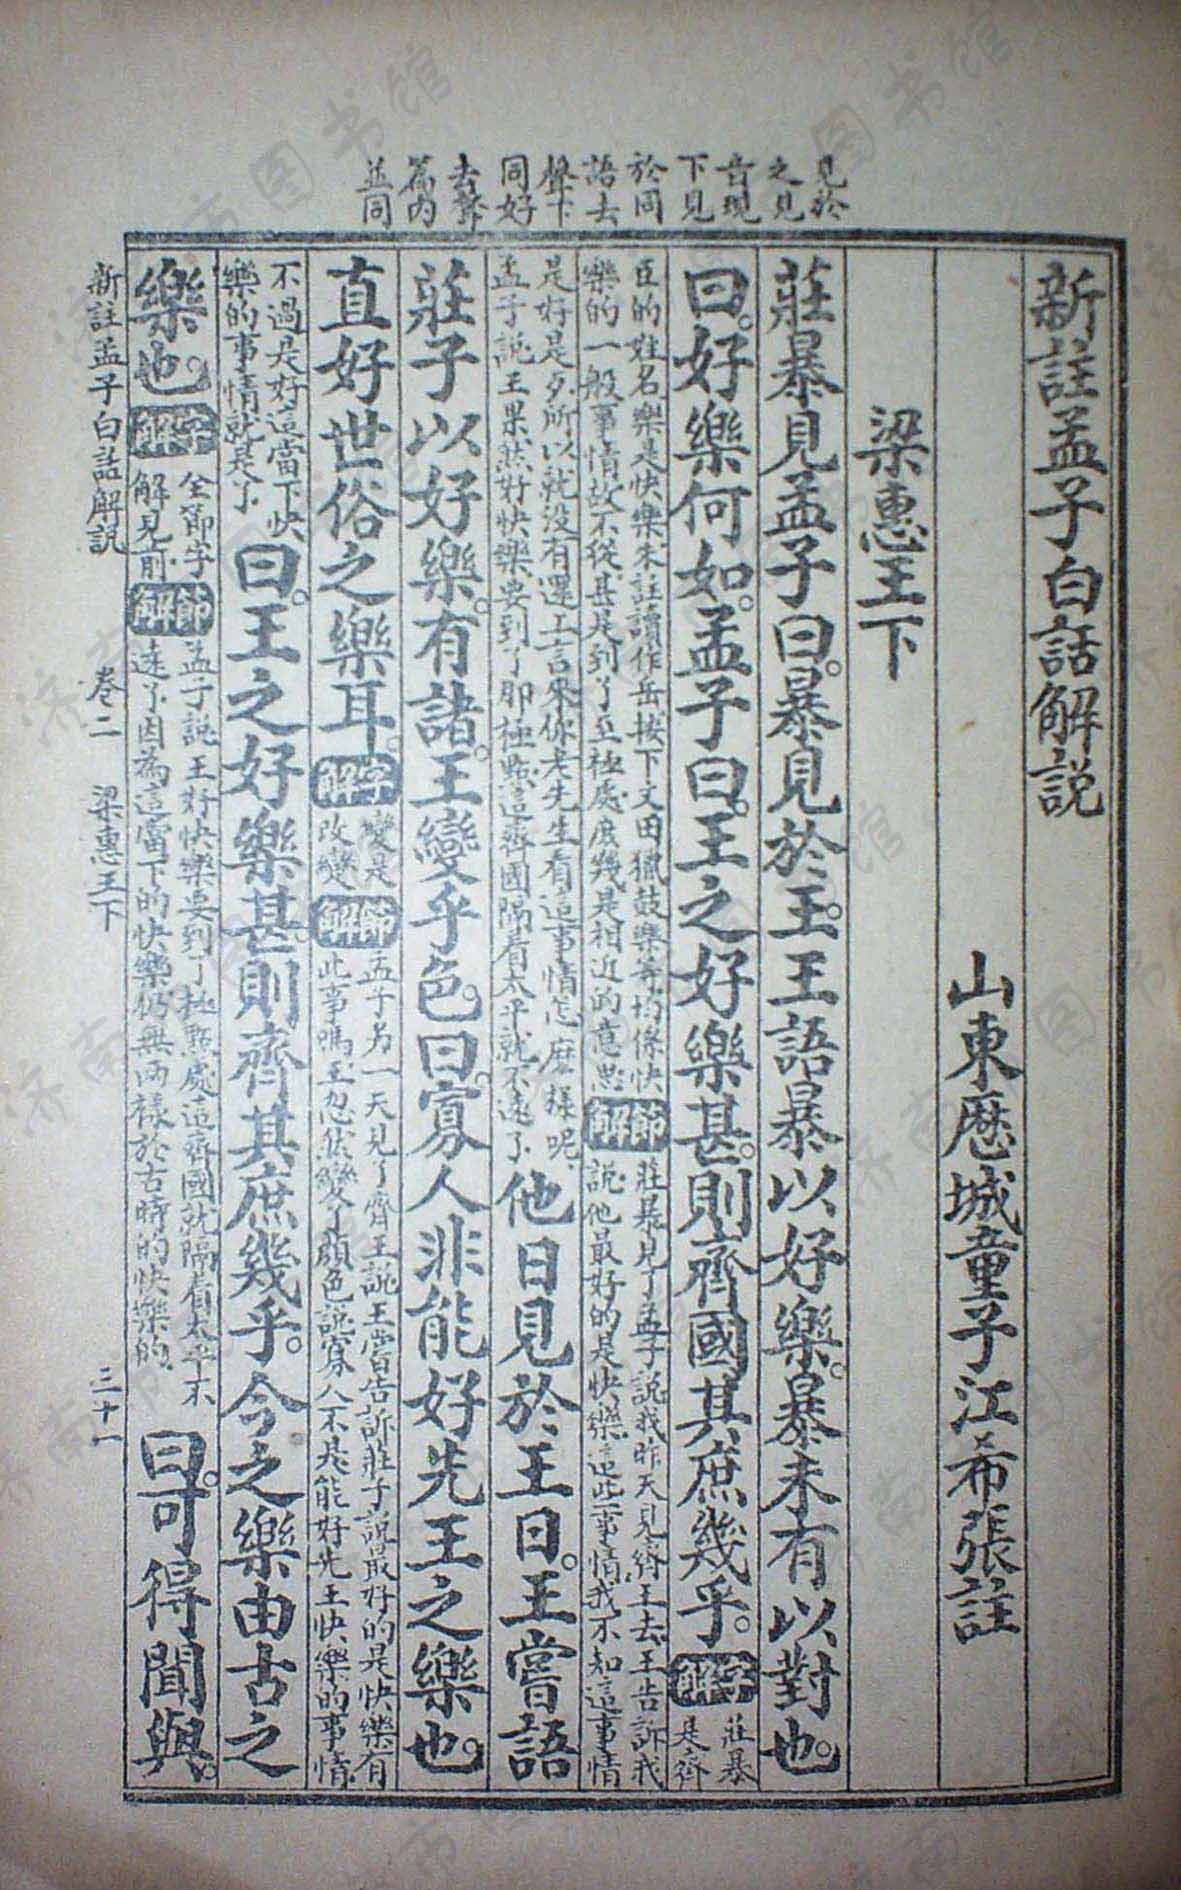 見於
之見
音現
下見
於同
語去
聲下
同好
去聲
篇内
並同
新註孟子白話解説
山東歷城童子江希張註
梁惠王下
莊暴見孟子曰。暴見於王。王語暴以好樂。暴未有以對也。
曰。好樂何如。孟子曰。王之好樂甚。則齊國其庶幾乎。字解 莊暴
是齊
臣的姓名樂是快樂朱註讀作岳按下文田獵鼓樂等均係快
樂的一般事情故不從甚是到了至極處庶幾是相近的意思 節解 莊暴見了孟子說我昨天見齊王去王告訴我
說他最好的是快樂這些事情我不知這事情
是好是歹所以就没有還上言來你老先生看這事情怎麽樣呢
孟子說王果然好快樂要到了那極點這齊國隔着太平就不遠了 他日見於王曰。王嘗語
莊子以好樂。有諸。王變乎色。曰。寡人非能好先王之樂也。
直好世俗之樂耳。字解 變是
改變 節解 孟子另一天見了齊王說王嘗告訴莊子說最好的是快樂有
此事嗎王忽然變了顔色說寡人不是能好先王快樂的事情
不過是好這當下快
樂的事情就是了 曰。王之好樂甚。則齊其庶幾乎。今之樂由古之
樂也。字解 全節字
解見前 節解 孟子說王好快樂要到了極點處這齊國就隔着太平不
遠了因爲這當下的快樂仍無兩樣於古時的快樂的 曰。可得聞與。
新註孟子白話解説 卷二 梁惠王下 三十一
济南市图书馆